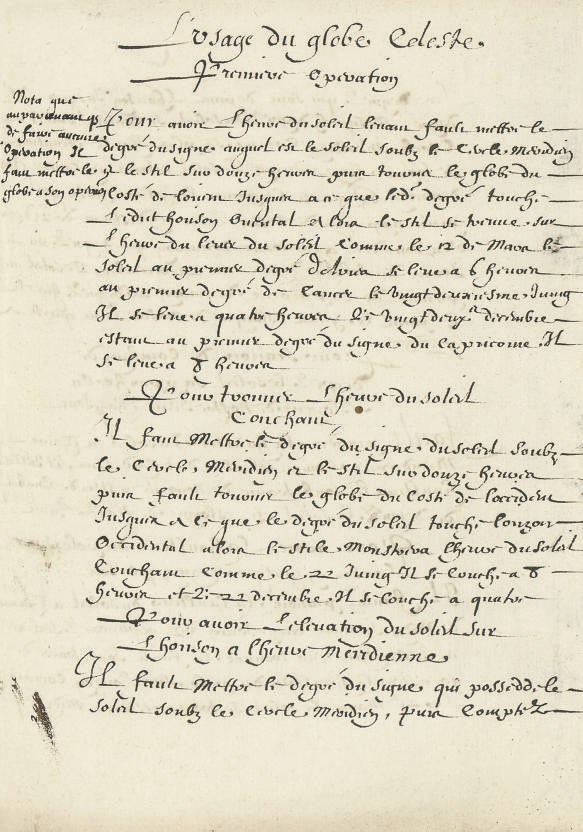 L'usage du globe Celeste
Premiere Operation
Nota que
auparavant q
de faire aucune
Operation Il
faut mettre le
globe a son
Pour avoir L'heure du soleil levant fault mettre le
degré du signe auquel est le soleil soubz le Cercle Meridien
et le stil sur douze heures puis tourner le globe du
Costé de lorient Jusques a ce que led. degré touche
L'edit horison Oriental et lors le stil se treuve sur
L'heure du lever du soleil Comme le 12 de Mars le
soleil au premier degré se leve a 6 heures
au premier degré de Cancer le vingtdeuxiesme Juing
Il se leve a quatre heures Le vingtdeux.e decembre
estant au premier degré du signe du Capricorne Il
se leve a 8 heures
Pour trouver L'heure du soleil
Couchant
Il faut Mettre le degré du signe du soleil soubz
le Cercle Meridien et le stil sur douze heures
puis fault tourner le globe du Costé de loccident
Jusques a ce que le degré du soleil touche lorizon
Occidental alors le stile Monstrera lheure du soleil
Couchant Comme le 22 Juing Il se Couche a 8
heures et Le 22 decembre Il se Couche a quatre
Pour avoir L'elevation du soleil sur
L'horison a lheure Meridienne
Il fault Mettre le degré du signe qui possedde le
soleil soubz le Cercle Meridien, puis Comptez